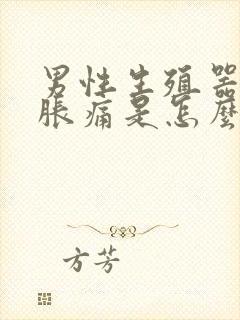 男性生殖器
脹痛是怎麼
方芳